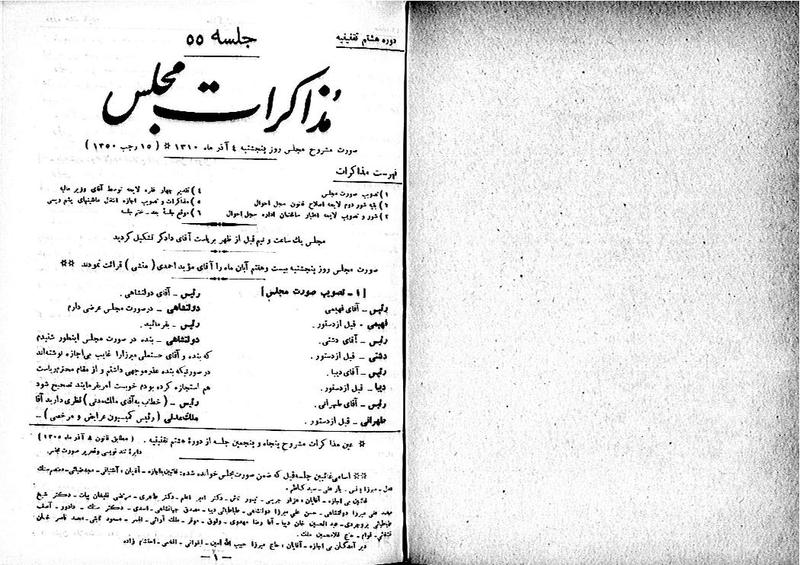 دوره هشتم تقنینیه
جلسه ۵۵
مذاکرات مجلس
صورت مشروح مجلس روز پنجشنبه ٤ آذر ماه ۱۳۱۰ * ( ۱٥ رجب ۱۳٥۰ )
فهرست مذاکرات
۱ ) تصویب صورت مجلس
۲ ) بقیه شور دوم لایحه اصلاح قانون سجل احوال
۳ ) شور و تصویب لایحه اعتبار ساختمان اداره سجل احوال
٤ ) تقدیم چهار فقره لایحه توسط آقای وزیر مالیه
٥ ) مذاکرات و تصویب اجازه انتقال ماشینهای پشم ریسی
٦ ) موقع جلسه بعد - ختم جلسه
مجلس یك ساعت و نیم قبل از ظهر بریاست آقای دادگر تشکیل گردید
صورت مجلس روز پنجشنبه بیست وهفتم آبان ماه را آقای مؤید احمدی ( منشی ) قرائت نمودند **
[ ۱ - تصویب صورت مجلس ]
رئیس - آقای فهیمی
فهیمی - قبل ازدستور .
رئیس - آقای دشتی .
دشتی - قبل ازدستور .
رئیس - آقای دیبا .
دیبا - قبل ازدستور .
رئیس - آقای طهرانی .
طهرانی - قبل ازدستور .
رئیس - آقای دولتشاهی .
دولتشاهی - درصورت مجلس عرضی دارم
رئیس - بفرمائید .
دولتشاهی - بنده در صورت مجلس اینطور شنیدم
که بنده و آقای حسنعلی میرزارا غایب بی‌اجازه نوشته‌اند
در صورتیکه بنده عذرموجهی داشتم و از مقام محترم ریاست
هم استجازه کرده بودم خوبست امر بفرمایند تصحیح شود
رئیس - ( خطاب به‌آقای ملك‌مدنی ) نظری دارید آقا
ملك‌مدنی ( رئیس کمیسیون عرایض و مرخصی ) -
* عین مذاکرات مشروح پنجاه و پنجمین جلسه از دورهٔ هشتم تقنینیه . ( مطابق قانون ۸ آذر ماه ۱۳۰٥ )
دایرهٔ تند نویسی و تحریر صورت مجلس
** اسامی غائبین جلسه قبل که ضمن صورت مجلس خوانده شده : غائبین بااجازه - آقایان :
دیر آمدگان بی اجازه - آقایان : حاج میرزا حبیب الله امین - اخوانی - احتشام زاده
- ۱ -